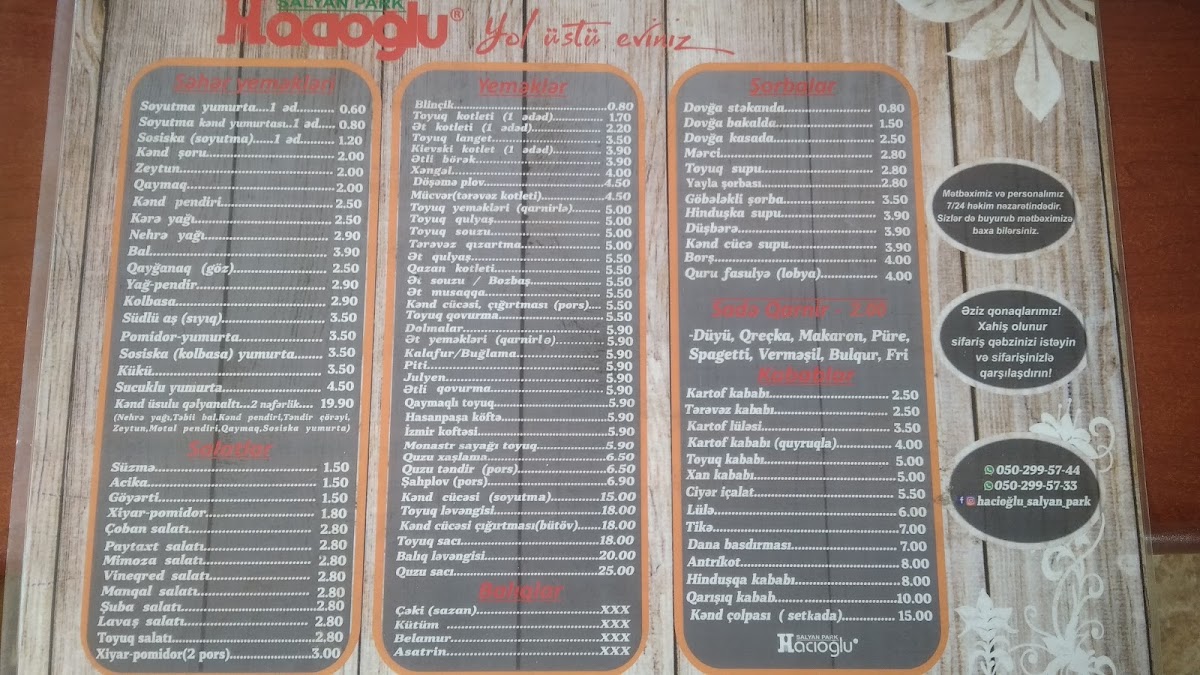 SALYAN PARK
Hacıoğlu®
Yol üstü eviniz
Səhər yeməkləri
Soyutma yumurta....1 əd....0.60
Soyutma kənd yumurtası..1 əd....0.80
Sosiska (soyutma).....1 əd....1.20
Kənd şoru....2.00
Zeytun....2.00
Qaymaq....2.00
Kənd pendiri....2.50
Kərə yağı....2.50
Nehrə yağı....2.90
Bal....3.90
Qayğanaq (göz)....2.50
Yağ-pendir....2.90
Kolbasa....2.90
Südlü aş (sıyıq)....3.50
Pomidor-yumurta....3.50
Sosiska (kolbasa) yumurta....3.50
Kükü....3.50
Sucuklu yumurta....4.50
Kənd üsulu qəlyanaltı...2 nəfərlik....19.90
(Nehrə yağı,Təbii bal,Kənd pendiri,Təndir çörəyi,
Zeytun,Motal pendiri,Qaymaq,Sosiska yumurta)
Salatlar
Süzmə....1.50
Acika....1.50
Göyərti....1.50
Xiyar-pomidor....1.80
Çoban salatı....2.80
Paytaxt salatı....2.80
Mimoza salatı....2.80
Vineqred salatı....2.80
Manqal salatı....2.80
Şuba salatı....2.80
Lavaş salatı....2.80
Toyuq salatı....2.80
Xiyar-pomidor(2 pors)....3.00
Yeməklər
Blinçik....0.80
Toyuq kotleti (1 ədəd)....1.70
Ət kotleti (1 ədəd)....2.20
Toyuq langet....3.50
Kievski kotlet (1 ədəd)....3.90
Ətli börək....3.90
Xəngəl....4.00
Döşəmə plov....4.50
Mücvər(tərəvəz kotleti)....4.50
Toyuq yeməkləri (qarnirlə)....5.00
Toyuq qulyaş....5.00
Toyuq souzu....5.00
Tərəvəz qızartma....5.00
Ət qulyaş....5.50
Qazan kotleti....5.50
Ət souzu / Bozbaş....5.50
Ət musaqqa....5.50
Kənd cücəsi, çığırtması (pors)....5.50
Toyuq qovurma....5.50
Dolmalar....5.90
Ət yeməkləri (qarnirlə)....5.90
Kalafur/Buğlama....5.90
Piti....5.90
Julyen....5.90
Ətli qovurma....5.90
Qaymaqlı toyuq....5.90
Hasanpaşa köftə....5.90
İzmir koftəsi....5.90
Monastr sayağı toyuq....5.90
Quzu xaşlama....6.50
Quzu təndir (pors)....6.50
Şahplov (pors)....6.90
Kənd cücəsi (soyutma)....15.00
Toyuq ləvəngisi....18.00
Kənd cücəsi çığırtması(bütöv)....18.00
Toyuq sacı....18.00
Balıq ləvəngisi....20.00
Quzu sacı....25.00
Balıqlar
Çəki (sazan)....XXX
Kütüm....XXX
Belamur....XXX
Asatrin....XXX
Şorbalar
Dovğa stəkanda....0.80
Dovğa bakalda....1.50
Dovğa kasada....2.50
Mərci....2.80
Toyuq supu....2.80
Yayla şorbası....2.80
Göbələkli şorba....3.50
Hinduşka supu....3.90
Düşbərə....3.90
Kənd cücə supu....3.90
Borş....4.00
Quru fasulyə (lobya)....4.00
Sadə Qarnir -
-Düyü, Qreçka, Makaron, Püre,
Spagetti, Verməşil, Bulqur, Fri
Kabablar
Kartof kababı....2.50
Tərəvəz kababı....2.50
Kartof lüləsi....3.50
Kartof kababı (quyruqla)....4.00
Toyuq kababı....5.00
Xan kababı....5.00
Ciyər içalat....5.50
Lülə....6.00
Tikə....7.00
Dana basdırması....7.00
Antrikot....8.00
Hinduşqa kababı....8.00
Qarışıq kabab....10.00
Kənd çolpası ( setkada)....15.00
SALYAN PARK
Hacıoğlu
Mətbəximiz və personalımız
7/24 həkim nəzarətindədir.
Sizlər də buyurub mətbəximizə
baxa bilərsiniz.
Əziz qonaqlarımız!
Xahiş olunur
sifariş qəbzinizi istəyin
və sifarişinizlə
qarşılaşdırın!
050-299-57-44
050-299-57-33
hacioğlu_salyan_park